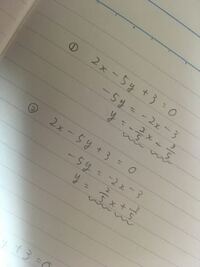 ①
2x - 5y + 3 = 0
-5y = -2x - 3
y = -2/5x - 3/5
②
2x - 5y + 3 = 0
-5y = -2x - 3
y = 2/5x + 3/5
y + 3 = 0